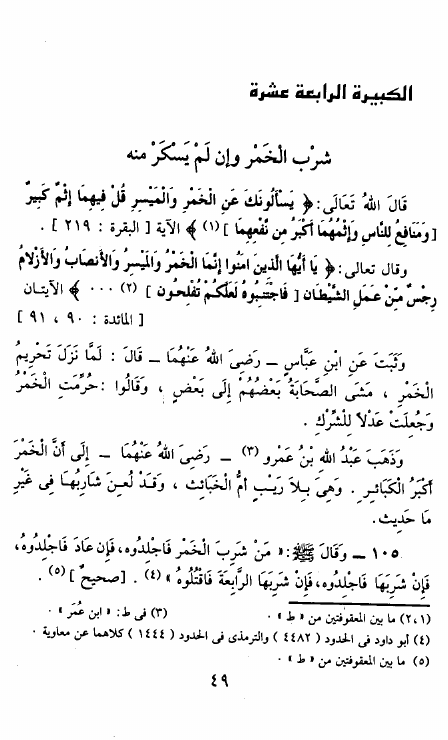 الكبيرة الرابعة عشرة
شرْب الْخَمْر وإن لَمْ يَسْكَرْ منه
قَالَ اللهُ تَعَالَى: ﴿ يَسْأَلُونَكَ عَنِ الْخَمْرِ وَالْمَيْسِرِ قُلْ فِيهِمَا إِثْمٌ كَبِيرٌ
[ وَمَنَافِعُ لِلنَّاسِ وَإِثْمُهُمَا أَكْبَرُ مِن نَّفْعِهِمَا ] (١) ﴾ الآية [ البقرة : ٢١٩ ] .
وقال تعالى: ﴿ يَا أَيُّهَا الَّذِينَ آمَنُوا إِنَّمَا الْخَمْرُ وَالْمَيْسِرُ وَالأَنصَابُ وَالأَزْلامُ
رِجْسٌ مِّنْ عَمَلِ الشَّيْطَانِ [ فَاجْتَنِبُوهُ لَعَلَّكُمْ تُفْلِحُونَ ] (٢) ٠٠٠ ﴾ الآيتان
[ المائدة : ٩٠ ، ٩١ ]
وَثَبَتَ عَنِ ابْنِ عَبَّاسٍ – رَضِىَ اللهُ عَنْهُمَا – قَالَ : لَمَّا نَزَلَ تَحْرِيمُ
الْخَمْرِ ، مَشَى الصَّحَابَةُ بَعْضُهُمْ إِلَى بَعْضٍ ، وَقَالُوا : حُرِّمَتِ الْخَمْرُ
وَجُعِلَتْ عَدْلاً لِلشِّرْكِ .
وَذَهَبَ عَبْدُ اللهِ بْنُ عَمْرٍو (٣) – رَضِىَ اللهُ عَنْهُمَا – إِلَى أَنَّ الْخَمْرَ
أَكْبَرُ الْكَبَائِرِ . وَهِىَ بِلاَ رَيْبٍ أُمُّ الْخَبَائِثِ ، وَقَدْ لُعِنَ شَارِبُهَا فِى غَيْرِ
مَا حَدِيثٍ .
١٠٥ – وَقَالَ ﷺ: « مَنْ شَرِبَ الْخَمْرَ فَاجْلِدُوهُ، فَإِن عَادَ فَاجْلِدُوهُ،
فَإِنْ شَرِبَهَا فَاجْلِدُوهُ، فَإِنْ شَرِبَهَا الرَّابِعَةَ فَاقْتُلُوهُ » (٤) . [ صحيحٌ ] (٥) .
(٢،١) ما بين المعقوفتين من « ط » . (٣) فى ط: « ابن عُمَر » .
(٤) أبو داود فى الحدود ( ٤٤٨٢ ) والترمذى فى الحدود ( ١٤٤٤ ) كلاهما عن معاوية .
(٥) ما بين المعقوفتين من « ط » .
٤٩